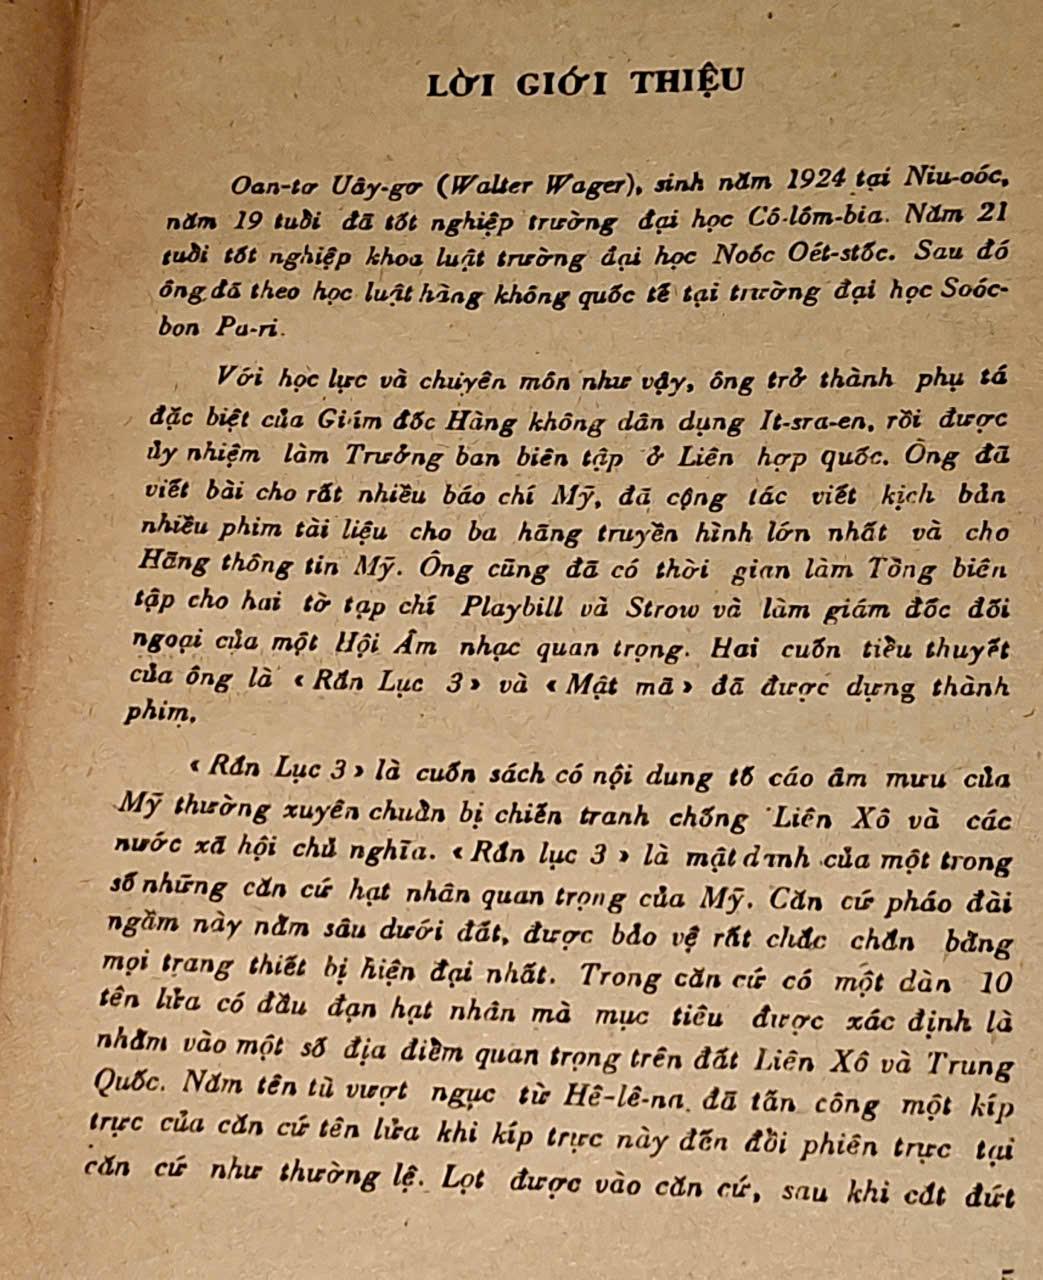 LỜI GIỚI THIỆU
Oan-tơ Uây-gơ (Walter Wager), sinh năm 1924 tại Niu-oóc,
năm 19 tuổi đã tốt nghiệp trường đại học Cô-lôm-bia. Năm 21
tuổi tốt nghiệp khoa luật trường đại học Noóc Oét-stốc. Sau đó
ông đã theo học luật hàng không quốc tế tại trường đại học Soóc-
bon Pa-ri.
Với học lực và chuyên môn như vậy, ông trở thành phụ tá
đặc biệt của Giám đốc Hàng không dân dụng It-sra-en, rồi được
ủy nhiệm làm Trưởng ban biên tập ở Liên hợp quốc. Ông đã
viết bài cho rất nhiều báo chí Mỹ, đã cộng tác viết kịch bản
nhiều phim tài liệu cho ba hãng truyền hình lớn nhất và cho
Hãng thông tin Mỹ. Ông cũng đã có thời gian làm Tổng biên
tập cho hai tờ tạp chí Playbill và Strow và làm giám đốc đối
ngoại của một Hội Âm nhạc quan trọng. Hai cuốn tiểu thuyết
của ông là « Rắn Lục 3 » và « Mật mã » đã được dựng thành
phim.
« Rắn Lục 3 » là cuốn sách có nội dung tố cáo âm mưu của
Mỹ thường xuyên chuẩn bị chiến tranh chống Liên Xô và các
nước xã hội chủ nghĩa. « Rắn lục 3 » là mật danh của một trong
số những căn cứ hạt nhân quan trọng của Mỹ. Căn cứ pháo đài
ngầm này nằm sâu dưới đất, được bảo vệ rất chắc chắn bằng
mọi trang thiết bị hiện đại nhất. Trong căn cứ có một dàn 10
tên lửa có đầu đạn hạt nhân mà mục tiêu được xác định là
nhằm vào một số địa điểm quan trọng trên đất Liên Xô và Trung
Quốc. Năm tên tù vượt ngục từ Hê-lê-na đã tấn công một kíp
trực của căn cứ tên lửa khi kíp trực này đến đổi phiên trực tại
căn cứ như thường lệ. Lọt được vào căn cứ, sau khi cắt đứt